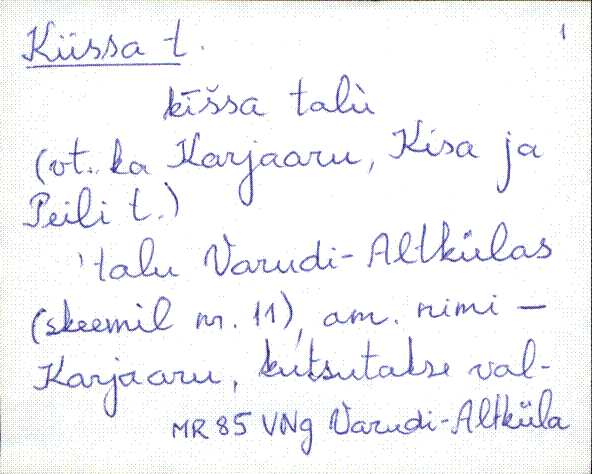 Küssa t. 1
kīšsa talù
(vt. ka Karjaaru, Kisa ja
Peili t.)
'talu Varudi-Altkülas
(skeemil nr. 11), am. nimi —
Karjaaru, kutsutakse val-
MR 85 VNg Varudi-Altküla